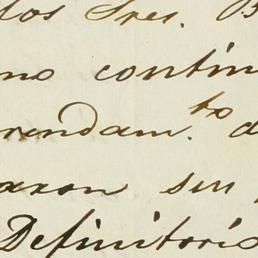 los Sres. B
no contin
rendam.to d
aron sin
Definitorio